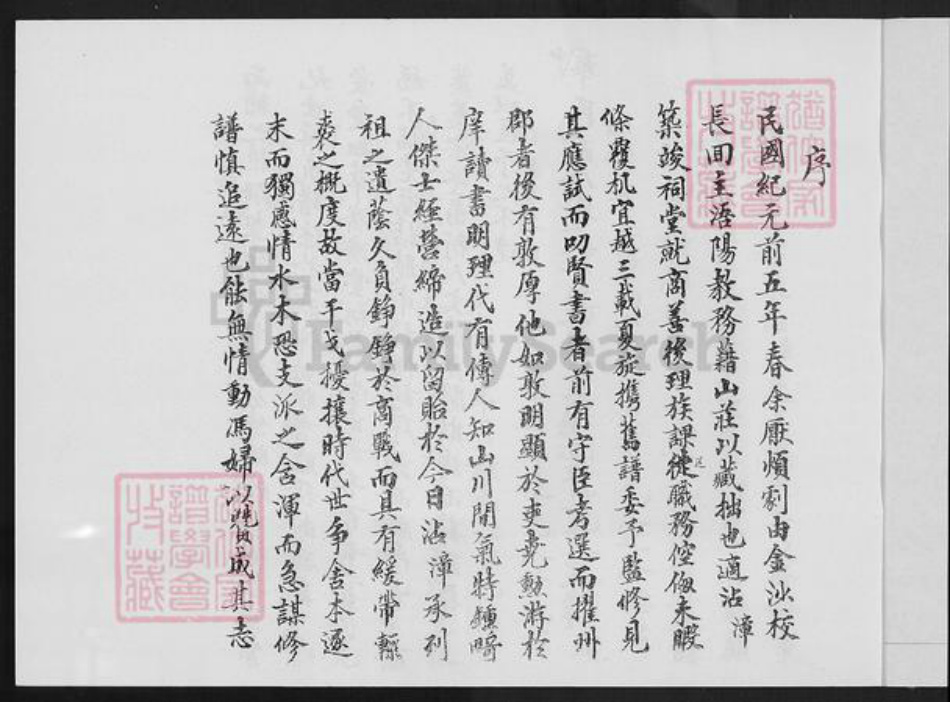 序
民國紀元前五年春余厭煩劇由金沙校
長回主浯陽教務藉山莊以藏拙也適沾漳
築竣祠堂就商善後理族課徒職務倥傯未暇
條覆机宜越三載夏旋攜舊譜委予監修見
其應試而叨賢書者前有守臣考選而擢州
郡者後有敦厚他如敦明顯於吏堯勲游於
庠讀書明理代有傳人知山川間氣特鍾畸
人傑士經營締造以留貽於今日沾漳承列
祖之遺蔭久負錚錚於商戰而具有緩帶輕
裘之概度故當干戈擾攘時代世争舍本逐
末而獨感情水木恐支派之含渾而急謀修
譜慎追遠也能無情動馮婦以贊成其志
FamilySearch
譜學會
藏
譜學會
藏